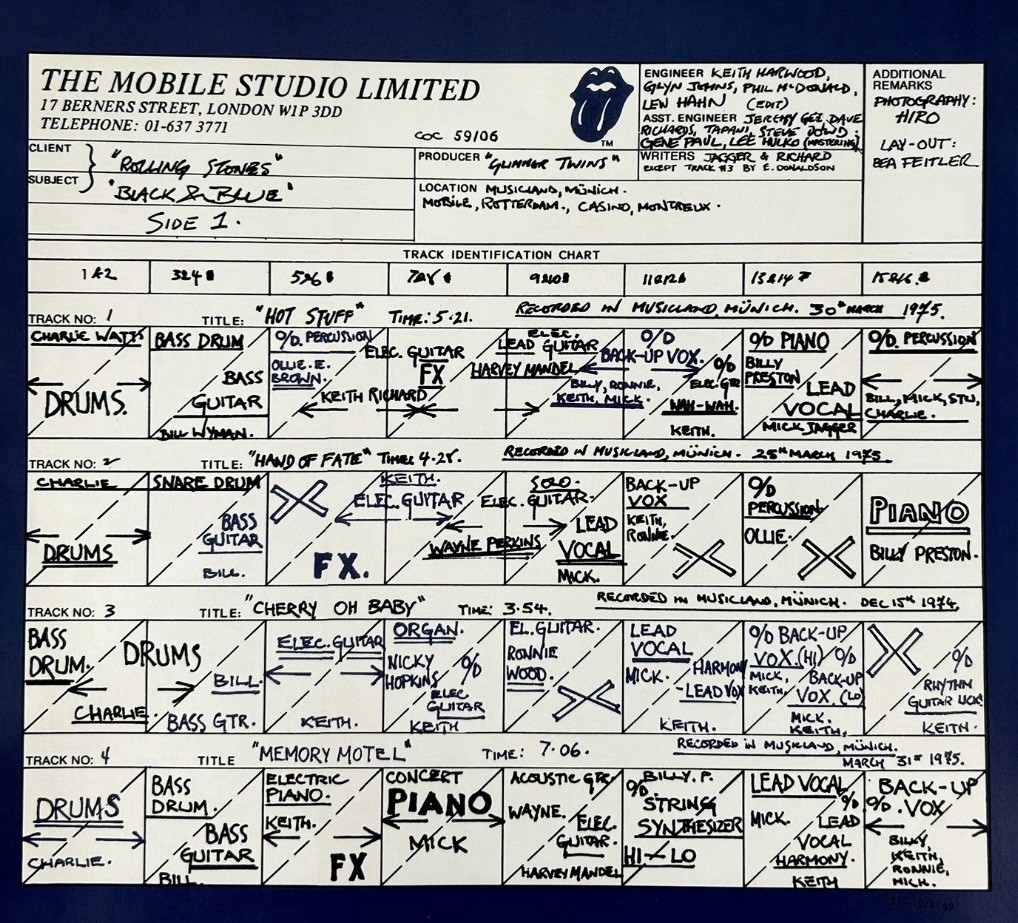 THE MOBILE STUDIO LIMITED
17 BERNERS STREET, LONDON W1P 3DD
TELEPHONE: 01-637 3771
COC 59106
TM
ENGINEER KEITH HARWOOD,
GLYN JOHNS, PHIL McDONALD,
LEW HAHN (EDIT)
ASST. ENGINEER JEREMY GEE, DAVE
RICHARDS, TAPANI, STEVE DOWD.
GENE PAUL, LEE HULKO (MASTERING)
WRITERS JAGGER & RICHARD
EXCEPT TRACK #3 BY E. DONALDSON
ADDITIONAL
REMARKS
PHOTOGRAPHY:
HIRO
LAY-OUT:
BEA FEITLER
CLIENT "ROLLING STONES"
SUBJECT "BLACK & BLUE"
SIDE 1.
PRODUCER "GLIMMER TWINS"
LOCATION MUSICLAND, MÜNICH.
MOBILE, ROTTERDAM., CASINO, MONTREUX.
TRACK IDENTIFICATION CHART
1&2 3&4 5&6 7&8 9&10 11&12 13&14 15&16
TRACK NO: 1 TITLE: "HOT STUFF" TIME: 5.21. RECORDED IN MUSICLAND MÜNICH. 30th MARCH 1975.
CHARLIE WATTS
DRUMS.
BASS DRUM
BASS
GUITAR
BILL WYMAN.
O/D. PERCUSSION
OLLIE. E.
BROWN.
KEITH RICHARD
ELEC. GUITAR
FX
ELEC.
LEAD GUITAR
HARVEY MANDEL
O/D
BACK-UP VOX.
BILLY, RONNIE,
KEITH, MICK.
O/D
ELEC. GTR
WAH-WAH.
KEITH.
O/D PIANO
BILLY
PRESTON
LEAD
VOCAL
MICK JAGGER
O/D. PERCUSSION
BILL, MICK, STU,
CHARLIE.
TRACK NO: 2 TITLE: "HAND OF FATE" TIME: 4.28. RECORDED IN MUSICLAND, MÜNICH. 25th MARCH 1975
CHARLIE
DRUMS
SNARE DRUM
BASS
GUITAR
BILL.
FX.
KEITH.
ELEC. GUITAR
WAYNE PERKINS
SOLO.
ELEC. GUITAR.
LEAD
VOCAL
MICK.
BACK-UP
VOX
KEITH,
RONNIE.
O/D
PERCUSSION
OLLIE.
PIANO
BILLY PRESTON.
TRACK NO: 3 TITLE: "CHERRY OH BABY" TIME: 3.54. RECORDED IN MUSICLAND, MÜNICH. DEC 15th 1974.
BASS
DRUM.
DRUMS
CHARLIE.
BILL.
BASS GTR.
ELEC. GUITAR
KEITH.
ORGAN.
NICKY
HOPKINS
O/D
ELEC
GUITAR
KEITH
EL. GUITAR.
RONNIE
WOOD.
LEAD
VOCAL
MICK.
HARMONY
-LEAD VOX
KEITH.
O/D BACK-UP
VOX. (HI)
MICK,
KEITH,
O/D
BACK-UP
VOX. (LO)
MICK.
KEITH.
O/D
RHYTHM
GUITAR LICK
KEITH.
TRACK NO: 4 TITLE "MEMORY MOTEL" TIME: 7.06. RECORDED IN MUSICLAND, MÜNICH.
MARCH 31st 1975.
DRUMS
CHARLIE.
BASS
DRUM.
BASS
GUITAR
BILL.
ELECTRIC
PIANO.
KEITH.
FX
CONCERT
PIANO
MICK
ACOUSTIC GTR
WAYNE.
ELEC.
GUITAR.
HARVEY MANDEL
BILLY. P.
O/D. STRING
SYNTHESIZER
HI-LO
LEAD VOCAL
MICK.
O/D
LEAD
VOCAL
HARMONY.
KEITH
BACK-UP
O/D. VOX
BILLY,
KEITH,
RONNIE,
MICK.